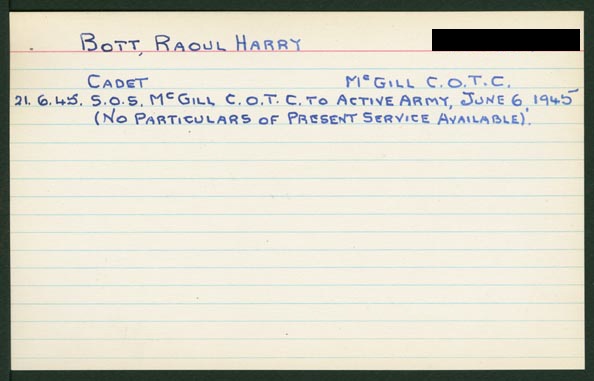 BOTT, RAOUL HARRY
CADET McGILL C.O.T.C.
21.6.45. S.O.S. McGILL C.O.T.C. TO ACTIVE ARMY, JUNE 6, 1945
(NO PARTICULARS OF PRESENT SERVICE AVAILABLE).